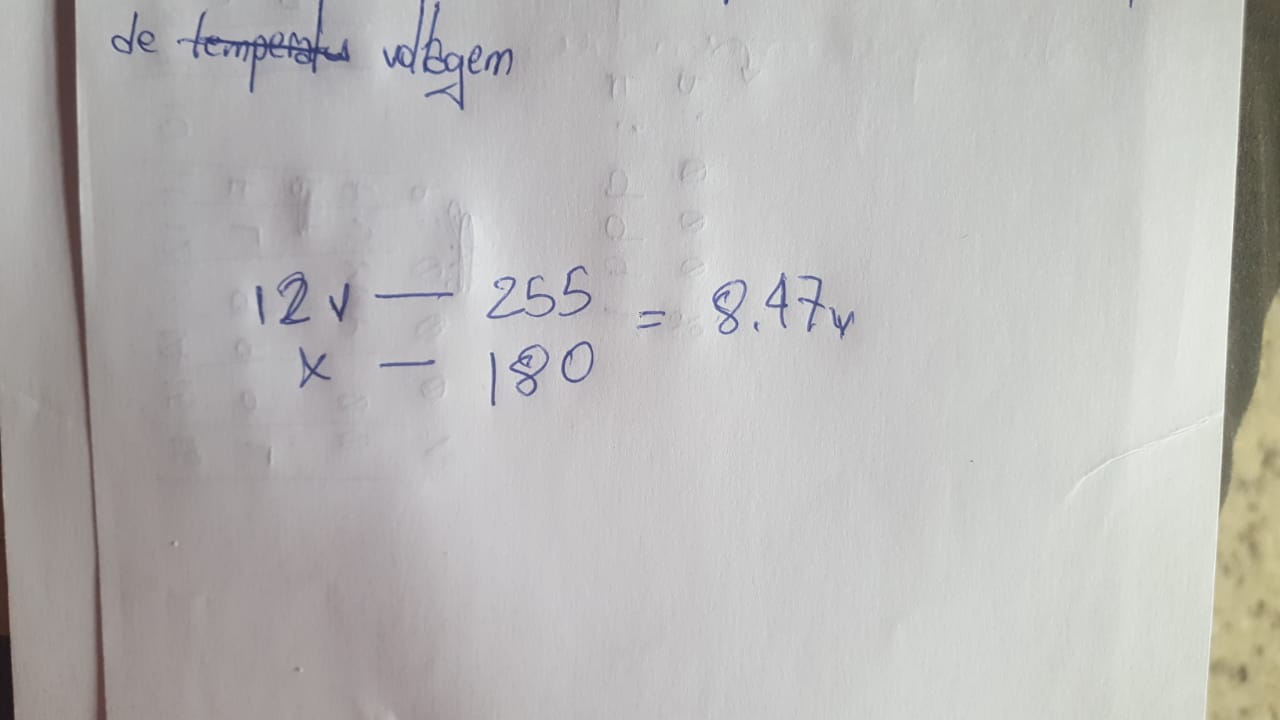 de temperatura voltagem
12v — 255 = 8.47v
x — 180